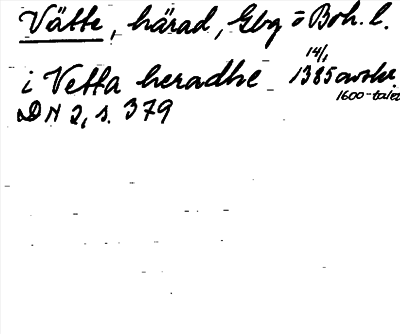 Vätte, härad, Gbg o Boh. l.
i Vetta heradhe 14/1 1385 avskr.
1600-talet
DN 2, s. 379